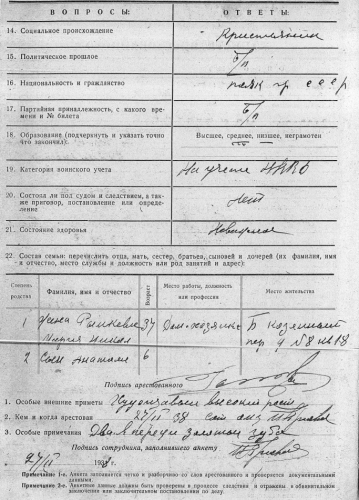 ВОПРОСЫ: ОТВЕТЫ:
14. Социальное происхождение Крестьянин
15. Политическое прошлое б/п
16. Национальность и гражданство поляк гр СССР
17. Партийная принадлежность, с какого времени и № билета б/п
18. Образование (подчеркнуть и указать точно что закончил): Высшее, среднее, низшее, неграмотен
19. Категория воинского учета На учете НКВД
20. Состояла ли под судом и следствием, а также приговор, постановление или определение Нет
21. Состояние здоровья
22. Состав семьи: перечислить отца, мать, сестер, братьев, сыновей и дочерей (их фамилия, имя
и отчество, место службы и должность или род занятий и адрес):
Степень родства Фамилия, имя и отчество Возраст Место работы, должность или профессия Место жительства
1 жена 37 Дом-хозяйка Б
пер д №8 кв 18
2 сын Анатолий 6
Подпись арестованного
1. Особые внешние приметы высокий рост
2. Кем и когда арестован 27/II 38
3. Особые примечания Два впереди золотых зуба
Подпись сотрудника, заполнившего анкету
27/II 1938 г.
Примечание 1-е. Анкета заполняется четко и разборчиво со слов арестованного и проверяется документальными
данными.
Примечание 2-е. Анкетные данные должны быть проверены в процессе следствия и отражены в обвинительном
заключении или заключительном постановлении по делу.